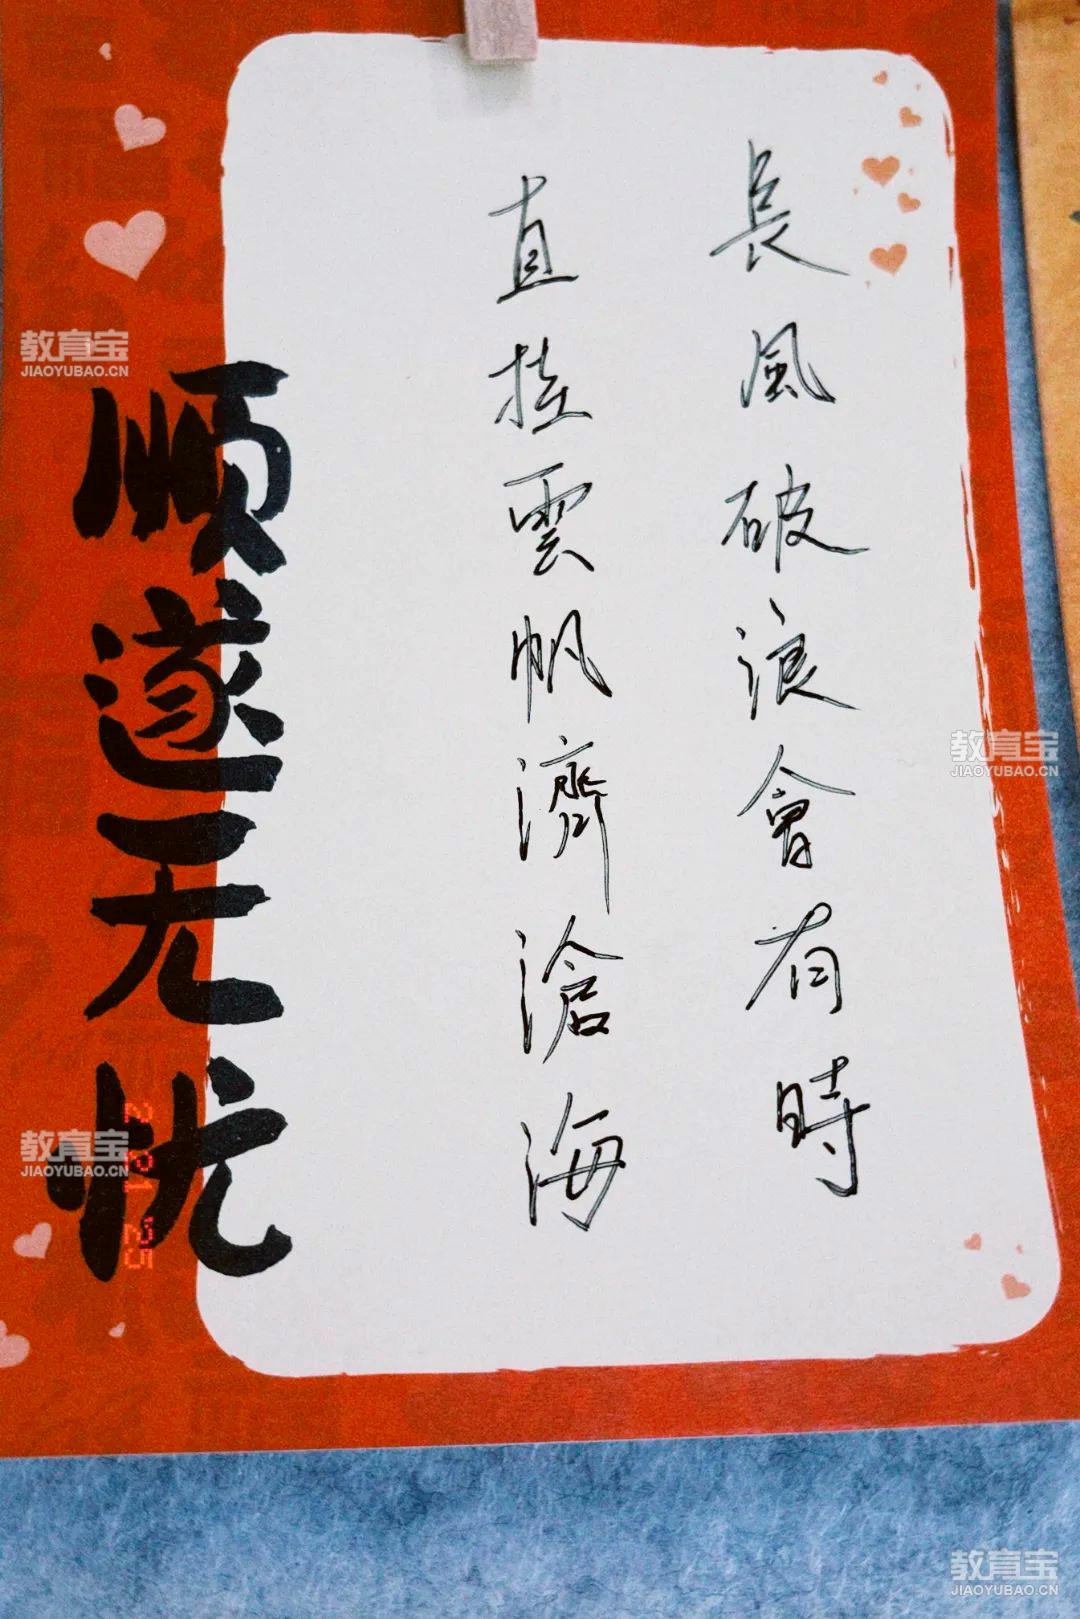 長風破浪會有時
直挂雲帆濟滄海
顺遂无忧
教育宝
JIAOYUBAO.CN
教育宝
JIAOYUBAO.CN
教育宝
JIAOYUBAO.CN
教育宝
JIAOYUBAO.CN